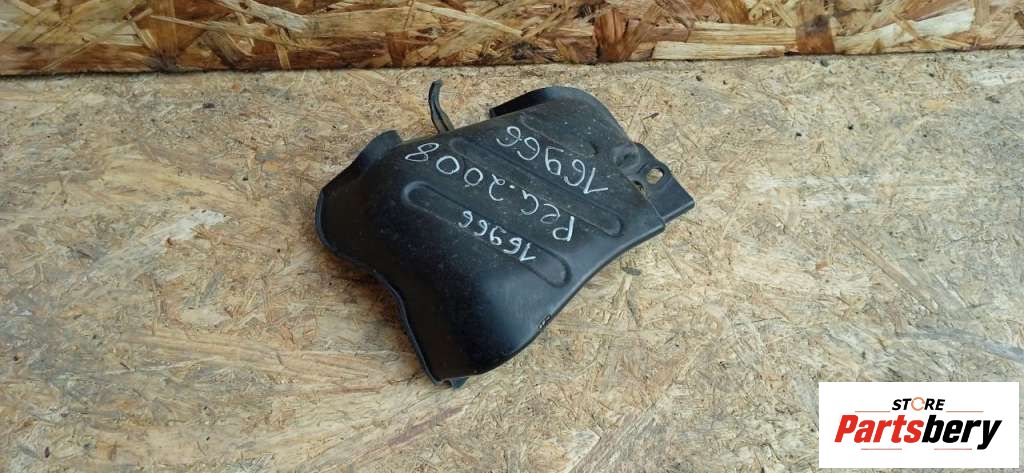 16966
PEG.2008
16966
STORE
Partsbery